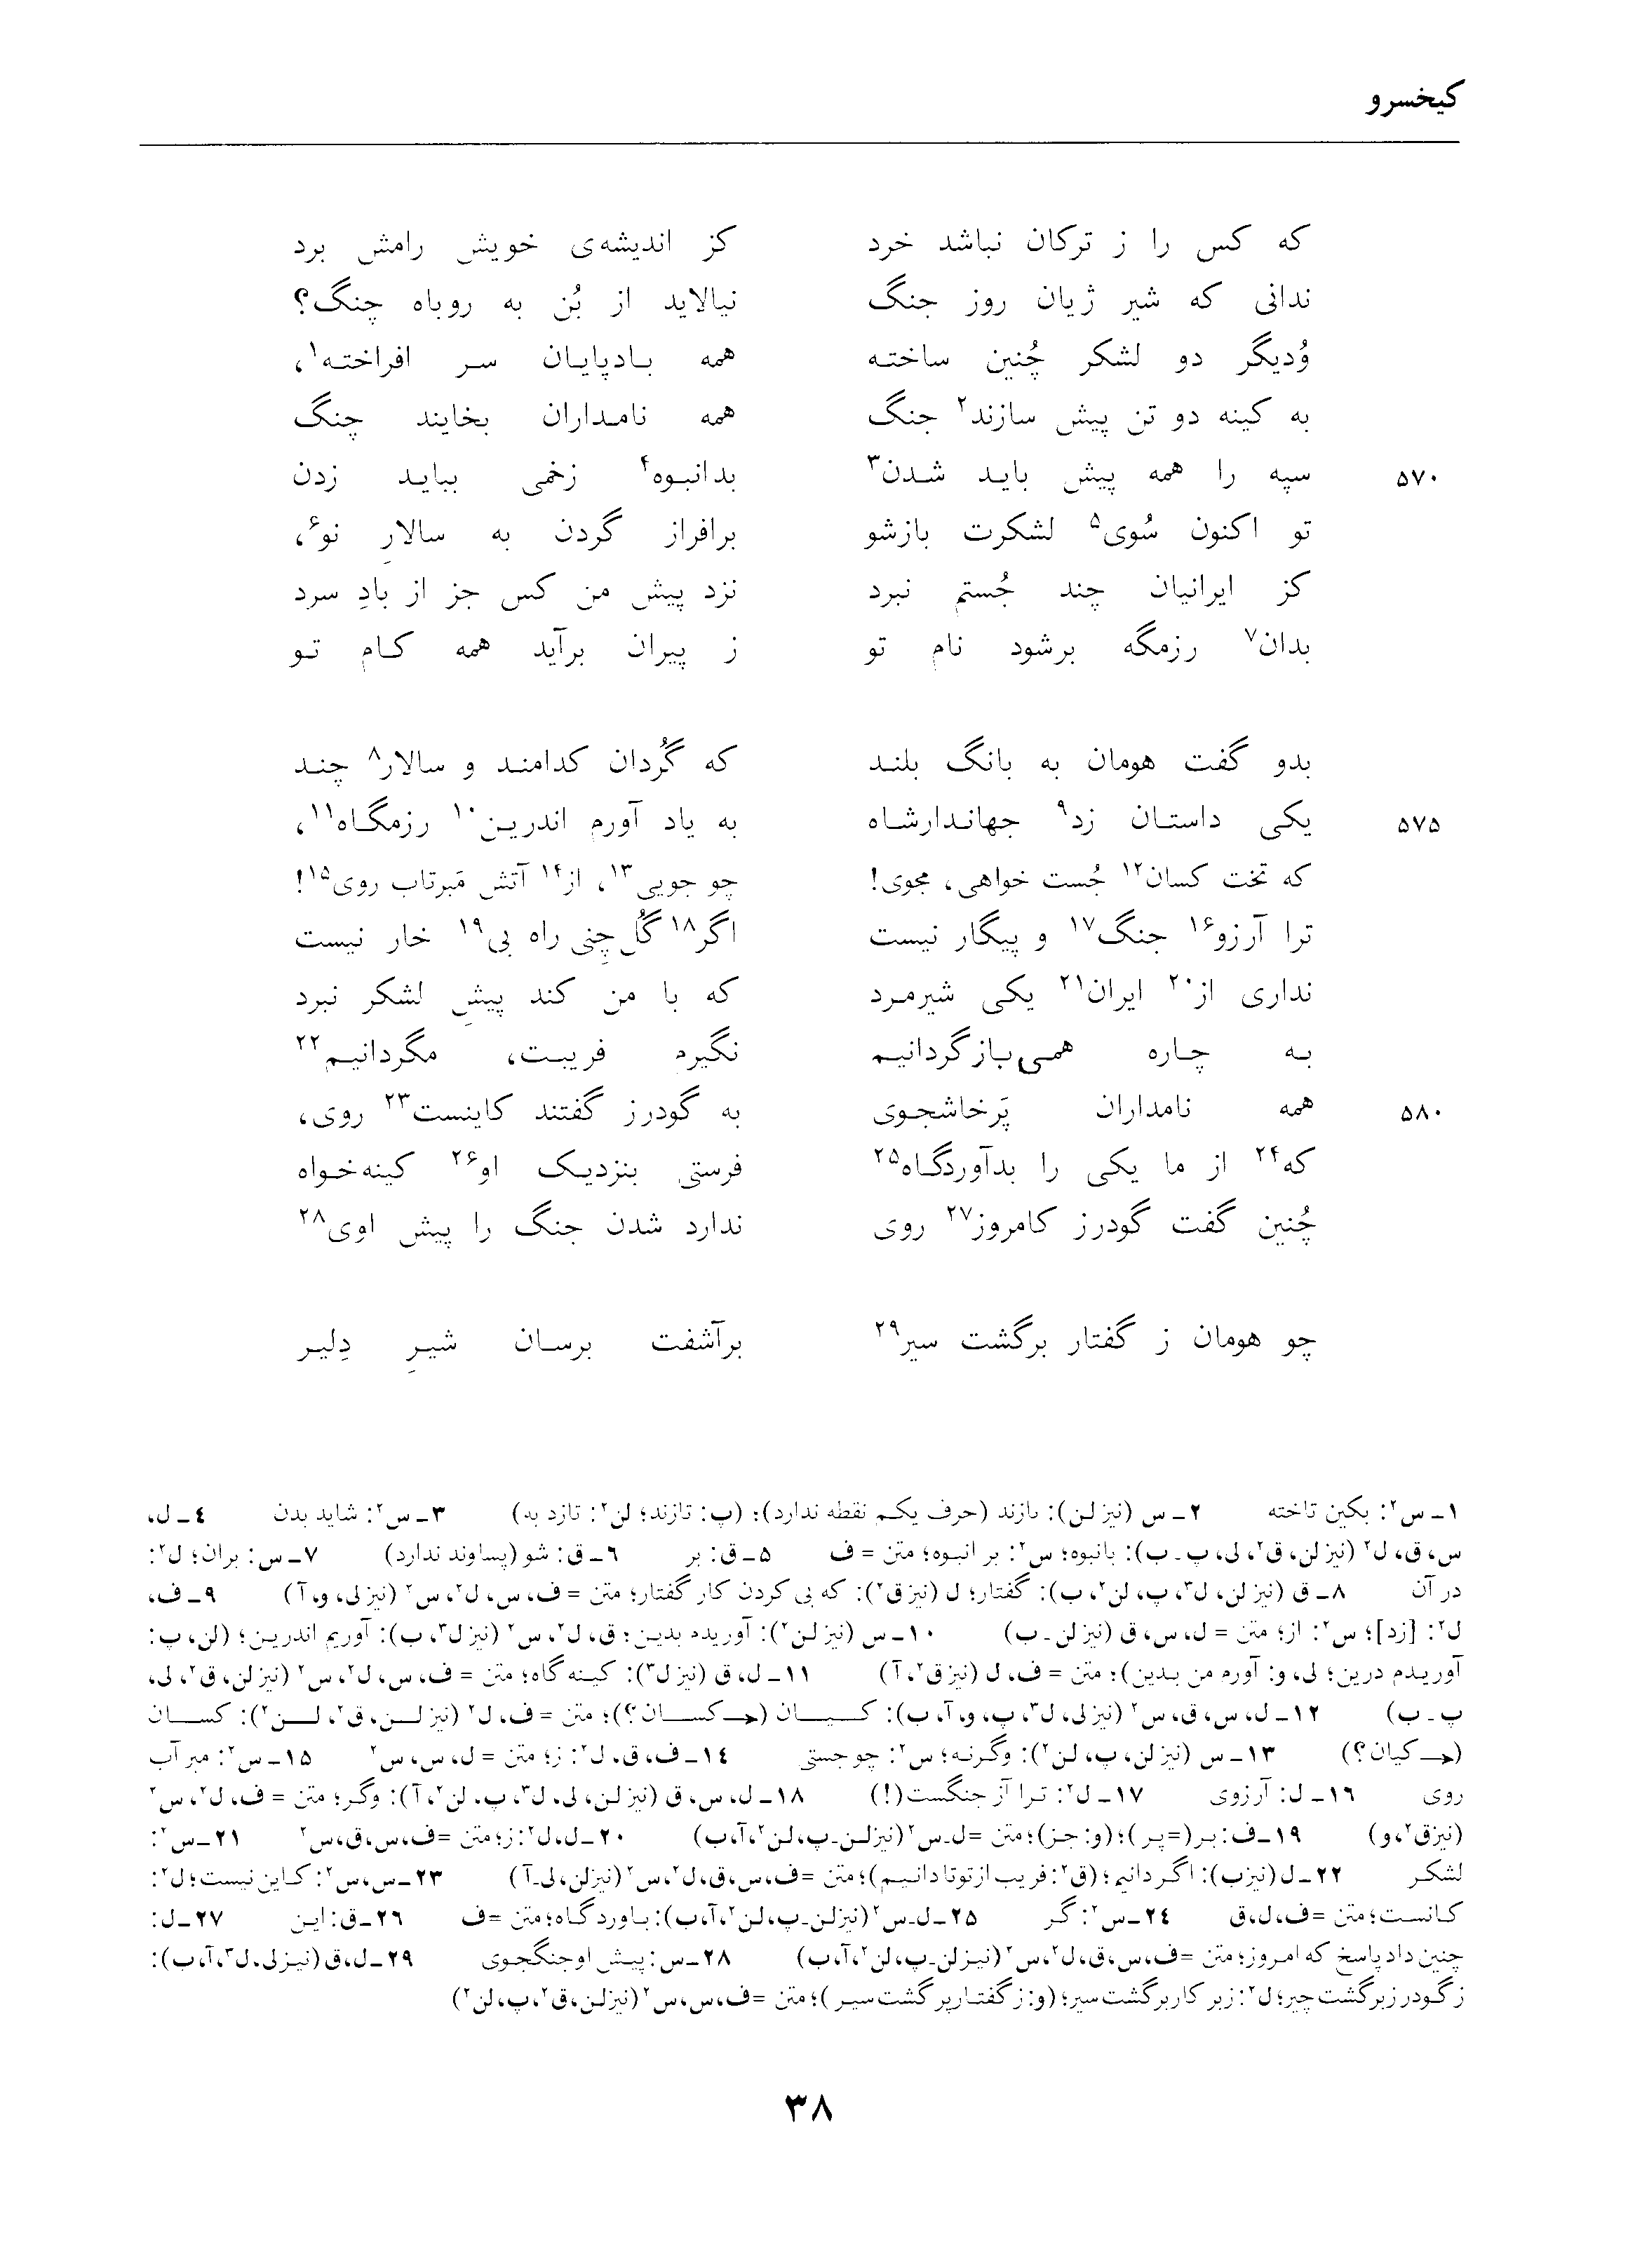 کیخسرو
که کس را ز ترکان نباشد خرد کز اندیشه‌ی خویش رامش برد
ندانی که شیر ژیان روز جنگ نیالاید از بُن به روباه چنگ؟
وُدیگر دو لشکر چُنین ساخته همه بادپایان سر افراخته۱،
به کینه دو تن پیش سازند۲ جنگ همه نامداران بخایند چنگ
۵۷۰ سپه را همه پیش باید شدن۳ بدانبوه۴ زخمی بباید زدن
تو اکنون سُوی۵ لشکرت بازشو برافراز گردن به سالارِ نو۶،
کز ایرانیان چند جُستم نبرد نزد پیش من کس جز از بادِ سرد
بدان۷ رزمگه برشود نام تو ز پیران برآید همه کام تو
بدو گفت هومان به بانگ بلند که گُردان کدامند و سالار۸ چند
۵۷۵ یکی داستان زد۹ جهاندارشاه به یاد آورم اندرین۱۰ رزمگاه۱۱،
که تخت کسان۱۲ جُست خواهی، مجوی! چو جویی۱۳، از۱۴ آتش مَبرتاب روی۱۵!
ترا آرزو۱۶ جنگ۱۷ و پیگار نیست اگر۱۸ گُل چِنی راه بی۱۹ خار نیست
نداری از۲۰ ایران۲۱ یکی شیرمرد که با من کند پیشِ لشکر نبرد
به چاره همی‌بازگردانیم نگیرم فریبت، مگردانیم۲۲
۵۸۰ همه نامداران پَرخاشجوی به گودرز گفتند کاینست۲۳ روی،
که۲۴ از ما یکی را بدآوردگاه۲۵ فرستی بنزدیک او۲۶ کینه‌خواه
چُنین گفت گودرز کامروز۲۷ روی ندارد شدن جنگ را پیش اوی۲۸
چو هومان ز گفتار برگشت سیر۲۹ برآشفت برسان شیرِ دِلیر
۱ـ س۲: بکین تاخته ۲ـ س (نیز لن): بازند (حرف یکم نقطه ندارد)؛ (پ: تازند؛ لن۲: تازد به) ۳ـ س۲: شاید بدن ۴ـ ل،
س، ق، ل۲ (نیز لن، ق۲، لی، پ ـ ب): بانبوه؛ س۲: بر انبوه؛ متن = ف ۵ـ ق: بر ۶ـ ق: شو (پساوند ندارد) ۷ـ س: بران؛ ل۲:
در آن ۸ـ ق (نیز لن، ل۳، پ، لن۲، ب): گفتار؛ ل (نیز ق۲): که بی کردن کار گفتار؛ متن = ف، س، ل۲، س۲ (نیز لی، و، آ) ۹ـ ف،
ل۲: [زد]؛ س۲: از؛ متن = ل، س، ق (نیز لن ـ ب) ۱۰ـ س (نیز لن۲): آوریدم بدین؛ ق، ل۲، س۲ (نیز ل۳، ب): آوریم اندرین؛ (لن، پ:
آوریدم درین؛ لی، و: آورم من بدین)؛ متن = ف، ل (نیز ق۲، آ) ۱۱ـ ل، ق (نیز ل۳): کینه گاه؛ متن = ف، س، ل۲، س۲ (نیز لن، ق۲، لی،
پ ـ ب) ۱۲ـ ل، س، ق، س۲ (نیز لی، ل۳، پ، و، آ، ب): کیان (⟵ کسان؟)؛ متن = ف، ل۲ (نیز لن، ق۲، لن۲): کسان
(⟵ کیان؟) ۱۳ـ س (نیز لن، پ، لن۲): وگرنه؛ س۲: چو جستی ۱۴ـ ف، ق، ل۲: ز؛ متن = ل، س، س۲ ۱۵ـ س۲: مبر آب
روی ۱۶ـ ل: آرزوی ۱۷ـ ل۲: ترا آز جنگست(!) ۱۸ـ ل، س، ق (نیز لن، لی، ل۳، پ، لن۲، آ): وگر؛ متن = ف، ل۲، س۲
(نیز ق۲، و) ۱۹ـ ف: بر (= پر)؛ (و: جز)؛ متن = ل ـ س۲ (نیز لن ـ پ، لن۲، آ، ب) ۲۰ـ ل، ل۲: ز؛ متن = ف، س، ق، س۲ ۲۱ـ س۲:
لشکر ۲۲ـ ل (نیز ب): اگر دانیم؛ (ق۲: فریب از تو تا دانیم)؛ متن = ف، س، ق، ل۲، س۲ (نیز لن، لی ـ آ) ۲۳ـ س، س۲: کاین نیست؛ ل۲:
کانست؛ متن = ف، ل، ق ۲۴ـ س۲: گر ۲۵ـ ل ـ س۲ (نیز لن ـ پ، لن۲، آ، ب): باوردگاه؛ متن = ف ۲۶ـ ق: این ۲۷ـ ل:
چنین داد پاسخ که امروز؛ متن = ف، س، ق، ل۲، س۲ (نیز لن ـ پ، لن۲، آ، ب) ۲۸ـ س: پیش او جنگجوی ۲۹ـ ل، ق (نیز لی، ل۳، آ، ب):
ز گودرز برگشت چیر؛ ل۲: ز بر کار برگشت سیر؛ (و: ز گفتار پر گشت سیر)؛ متن = ف، س، س۲ (نیز لن، ق۲، پ، لن۲)
۳۸